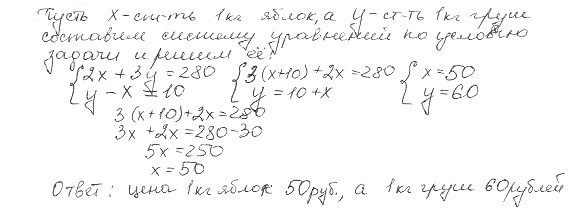 Пусть x-ст-ть 1кг яблок, а y-ст-ть 1кг груш
составим систему уравнений по условию
задачи и решим её:
{2x + 3y = 280 {3(x+10)+2x = 280 {x = 50
{y - x = 10 {y = 10 + x {y = 60
3(x+10)+2x = 280
3x + 2x = 280-30
5x = 250
x = 50
Ответ: цена 1кг яблок 50руб., а 1кг груш 60рублей